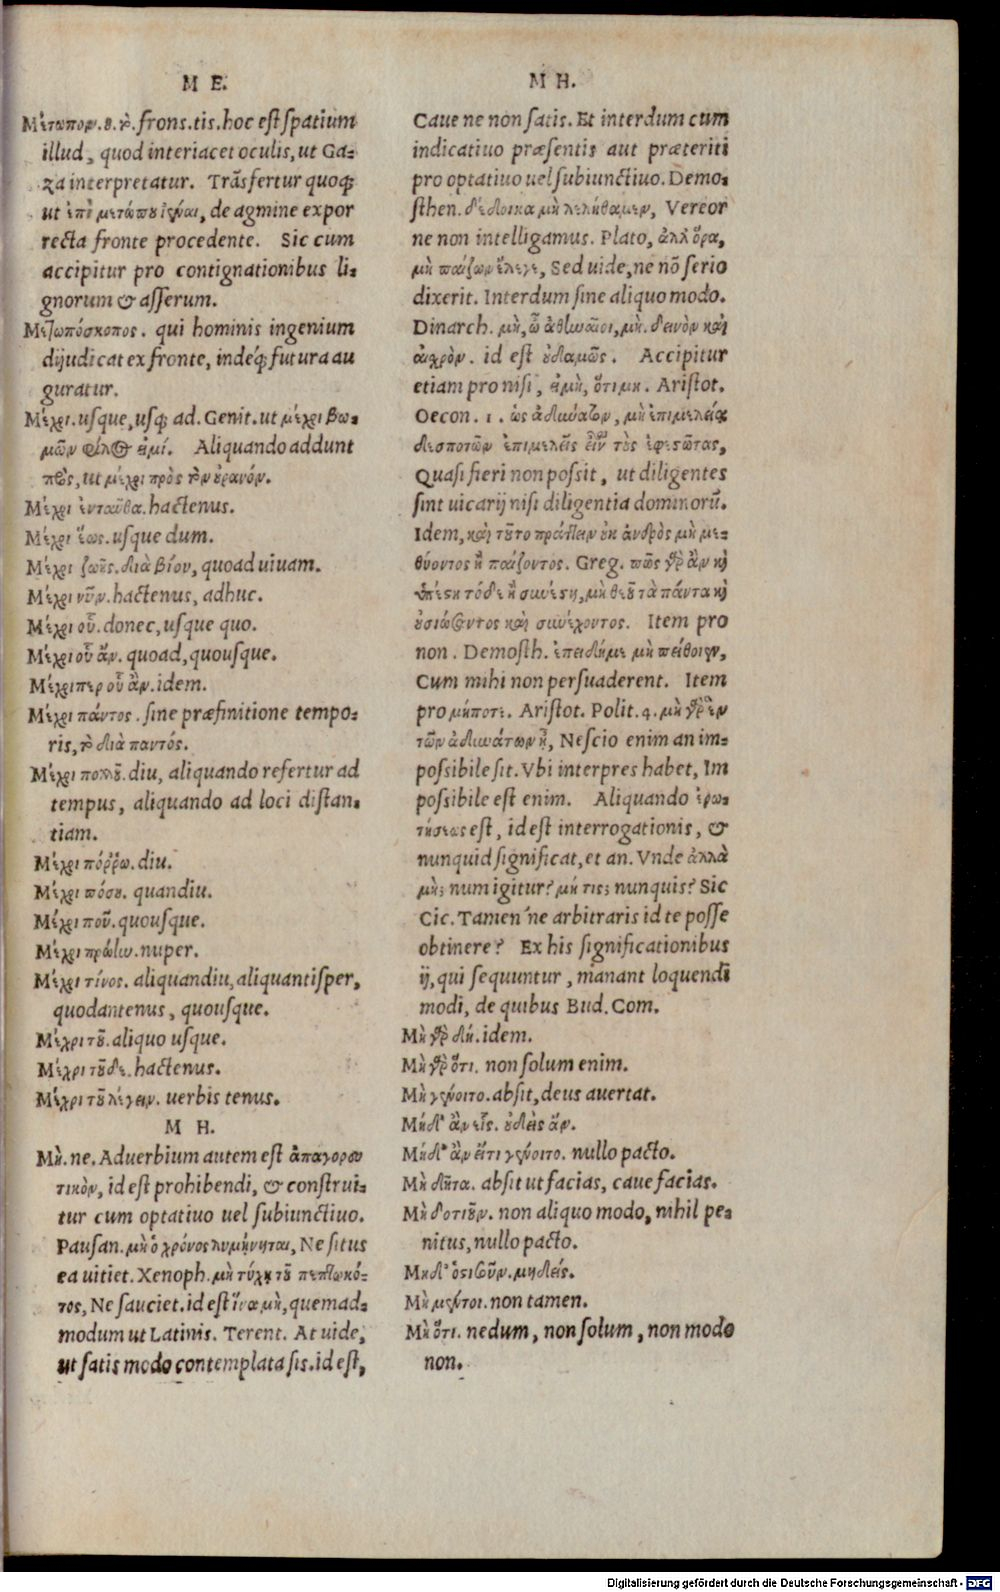 M E.
Μέτωπον. ου. τὸ. frons. tis. hoc est spatium
illud, quod interiacet oculis, ut Ga-
za interpretatur. Trãsfertur quoq;
ut ἐπὶ μετώπου ἰέναι, de agmine expor
recta fronte procedente. Sic cum
accipitur pro contignationibus li-
gnorum & asserum.
Μετωπόσκοπος. qui hominis ingenium
dijudicat ex fronte, indeq́; futura au
guratur.
Μέχρι. usque, usq; ad. Genit. ut μέχρι βω-
μῶν φίλος εἰμί. Aliquando addunt
πρὸς, ut μέχρι πρὸς τὸν οὐρανόν.
Μέχρι ἐνταῦθα. hactenus.
Μέχρι ἕως. usque dum.
Μέχρι ζωῆς. διὰ βίου, quoad uiuam.
Μέχρι νῦν. hactenus, adhuc.
Μέχρι οὗ. donec, usque quo.
Μέχρι οὗ ἄν. quoad, quousque.
Μέχριπερ οὗ ἂν. idem.
Μέχρι παντος. sine præfinitione tempo-
ris, τὸ διὰ παντός.
Μέχρι πολλοῦ. diu, aliquando refertur ad
tempus, aliquando ad loci distan-
tiam.
Μέχρι πόῤῥω. diu.
Μέχρι πόσου. quandiu.
Μέχρι ποῦ. quousque.
Μέχρι πρώην. nuper.
Μέχρι τίνος. aliquandiu, aliquantisper,
quodantenus, quousque.
Μέχρι τοῦ. aliquo usque.
Μέχρι τοῦδε. hactenus.
Μέχρι τοῦ λέγειν. uerbis tenus.
M H.
Μὴ. ne. Aduerbium autem est ἀπαγορευ
τικὸν, id est prohibendi, & construi-
tur cum optatiuo uel subiunctiuo.
Pausan. μὴ ὁ χρόνος λυμήνηται, Ne situs
ea uitiet. Xenoph. μὴ τύχῃ τοῦ πεπτωκό-
τος, Ne sauciet. id est ἵνα μὴ, quemad-
modum ut Latinis. Terent. At uide,
ut satis modo contemplata sis. id est,
M H.
Caue ne non satis. Et interdum cum
indicatiuo præsentis aut præteriti
pro optatiuo uel subiunctiuo. Demo-
sthen. δέδοικα μὴ λελήθαμεν, Vereor
ne non intelligamus. Plato, ἀλλ' ὅρα,
μὴ παίζων ἔλεγε, Sed uide, ne nõ serio
dixerit. Interdum sine aliquo modo.
Dinarch. μὴ, ὦ ἀθηναῖοι, μὴ. δεινὸν καὶ
αἰχρὸν. id est οὐδαμῶς. Accipitur
etiam pro nisi, εἰ μὴ, ὅτι μη. Aristot.
Oecon. 1. ὡς ἀδύνατον, μὴ ἐπιμελείας
δεσποτῶν ἐπιμελεῖς εἶναι τοὺς ἐφεστῶτας,
Quasi fieri non possit, ut diligentes
sint uicarij nisi diligentia dominorũ.
Idem, καὶ τοῦτο πράττειν οὐκ ἀνδρὸς μὴ με-
θύοντος ἢ παίζοντος. Greg. πῶς γὰρ ἂν καὶ
ὑπέστη τόδε ἢ συνέστη, μὴ θεοῦ τὰ πάντα καὶ
οὐσιώσαντος καὶ συνέχοντος. Item pro
non. Demosth. ἐπειδή με μὴ πείθοιεν,
Cum mihi non persuaderent. Item
pro μήποτε. Aristot. Polit. 4. μὴ γὰρ ἓν
τῶν ἀδυνάτων ᾖ, Nescio enim an im-
possibile sit. Vbi interpres habet, Im
possibile est enim. Aliquando ἐρω-
τήσεως est, id est interrogationis, &
nunquid significat, et an. Vnde ἀλλὰ
μὴ; num igitur? μή τις; nunquis? Sic
Cic. Tamen' ne arbitraris id te posse
obtinere? Ex his significationibus
ij, qui sequuntur, manant loquendi
modi, de quibus Bud. Com.
Μὴ γὰρ δή. idem.
Μὴ γὰρ ὅτι. non solum enim.
Μὴ γένοιτο. absit, deus auertat.
Μήδ' ἂν εἷς. οὐδεὶς ἄν.
Μήδ' ἂν εἴ τι γένοιτο. nullo pacto.
Μὴ δῆτα. absit ut facias, caue facias.
Μὴ δοτιοῦν. non aliquo modo, nihil pe-
nitus, nullo pacto.
Μηδ' ὁστισοῦν. μηδείς.
Μὴ μέντοι. non tamen.
Μὴ ὅτι. nedum, non solum, non modo
non.
Digitalisierung gefördert durch die Deutsche Forschungsgemeinschaft - DFG